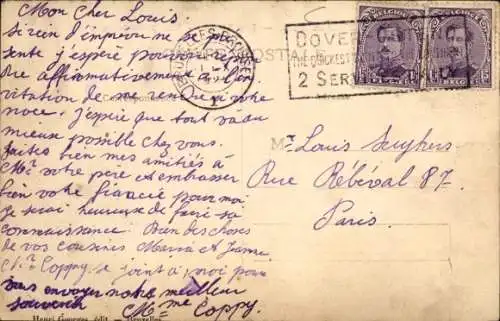 Mon Cher Louis.
Si rien d'imprévu ne se pré
sente j'espère pouvoir répon
dre affirmativement à l'in
vitation de me rendre à votre
noce. J'espère que tout va du
mieux possible chez vous.
faites bien mes amitiés à
Mr votre père et embrasser
bien votre fiancée pour moi
je serai heureuse de faire sa
connaissance. Bien des choses
de vos cousines Maria et Jeanne
Mr Coppy se joint à moi pour
vous envoyer notre meilleur
souvenir Mme Coppy.
Henri Georges, édit. — Bruxelles
CARTE POSTALE
DOVER
THE QUICKEST
2 SER
BELGIQUE
BELGIQUE
15
15
Mr Louis
Rue Rébeval 87.
Paris.